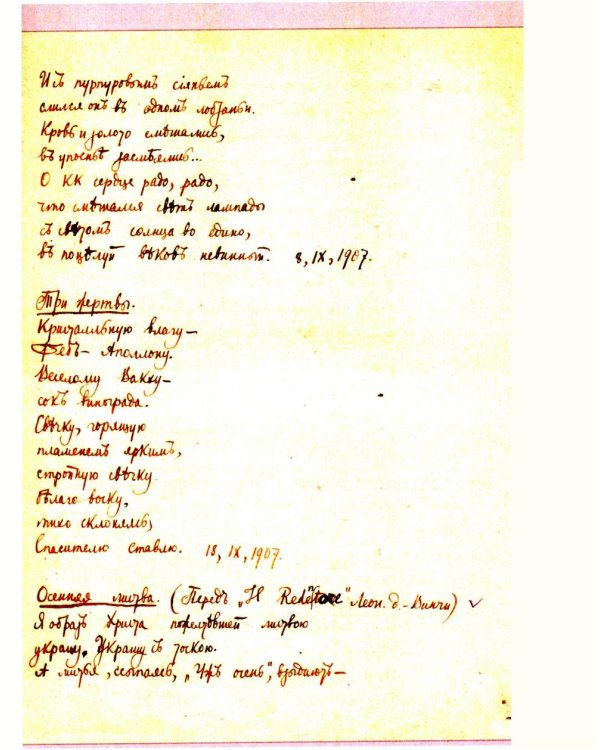 И съ пурпуровымъ сіяньемъ
слился онъ въ одномъ лобзаньи.
Кровь и золото смѣшались,
въ упоеньѣ засмѣялись...
О КК сердце радо, радо,
что смѣшался свѣтъ лампады
съ свѣтомъ солнца во едино,
въ поцѣлуй вѣковъ невинный. 8, IX, 1907.
Три жертвы.
Кристалльную влагу—
Фебъ-Аполлону.
Веселому Вакху—
сокъ винограда.
Свѣчку, горящую
пламенемъ яркимъ,
стройную свѣчку
бѣлаго воску,
тихо склоняясь,
Спасителю ставлю. 18, IX, 1907.
Осенняя листва. (Передъ „Il Redentore" Леон. д-Винчи)
Я образъ Христа пожелтѣвшей листвою
украшу. Украшу съ тоскою.
А листья, осыпаясь, „Ужъ осень", вздыхаютъ—